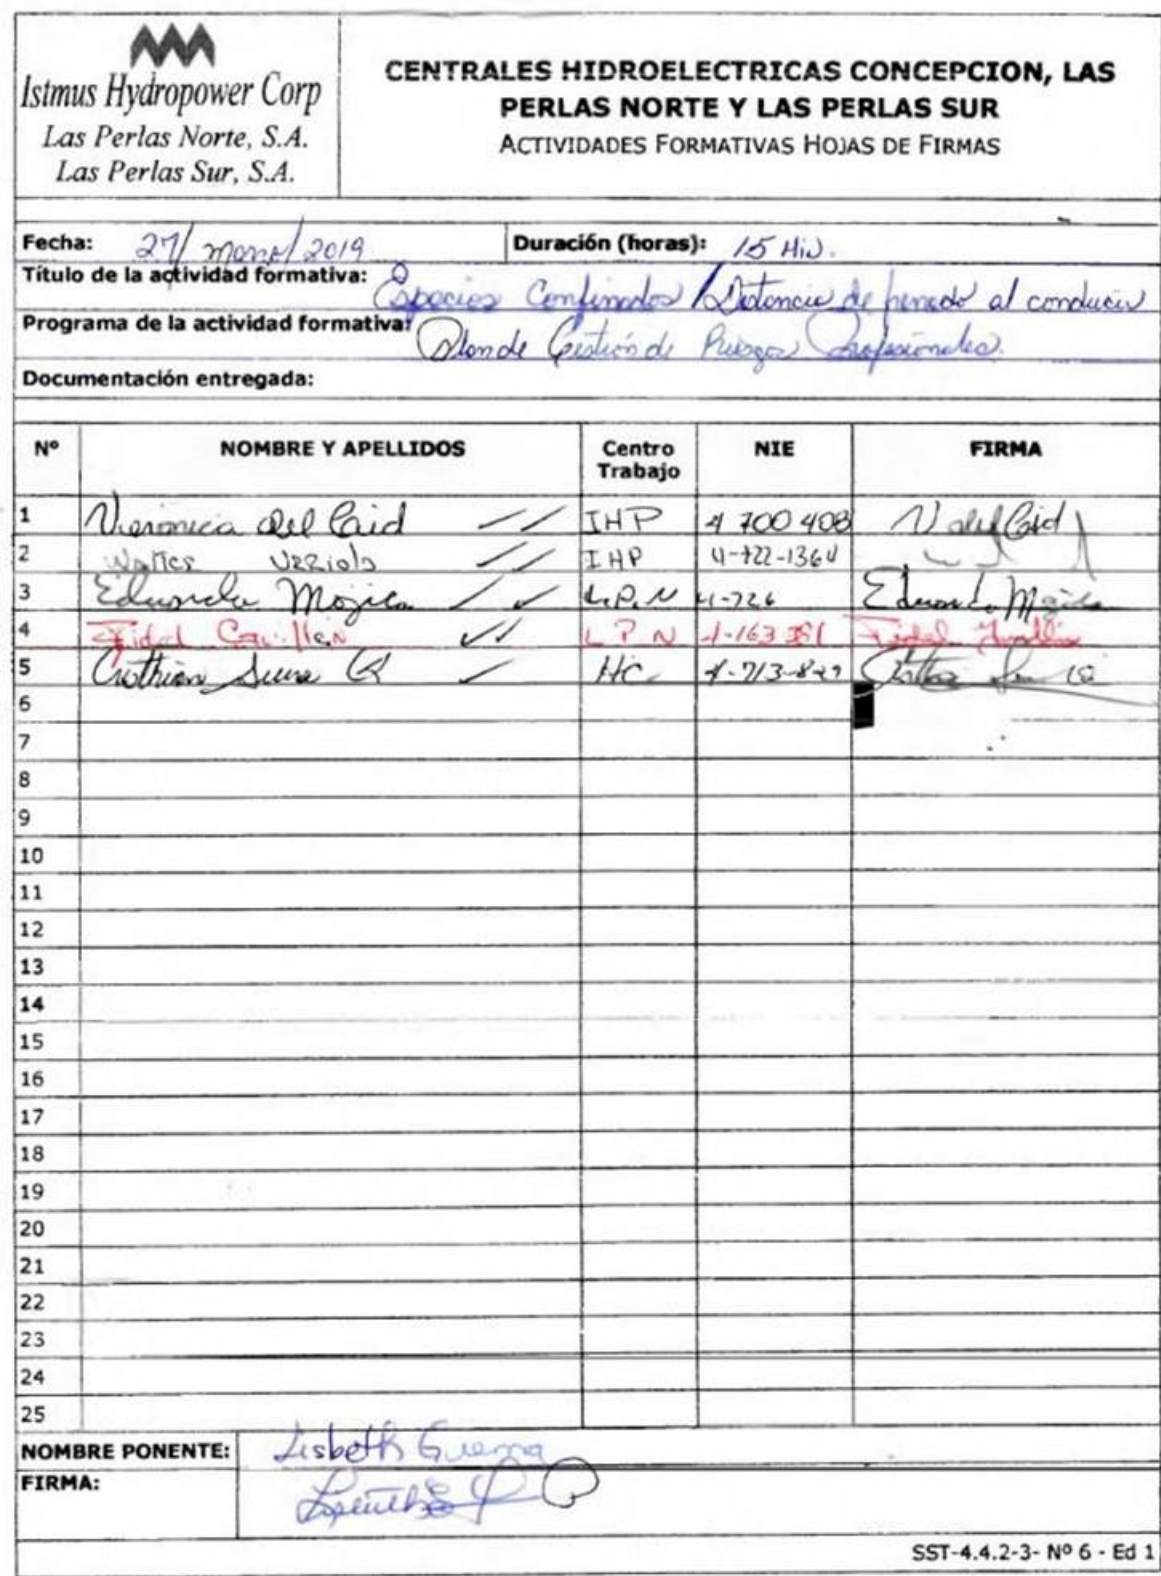 Istmus Hydropower Corp
Las Perlas Norte, S.A.
Las Perlas Sur, S.A.
CENTRALES HIDROELECTRICAS CONCEPCION, LAS
PERLAS NORTE Y LAS PERLAS SUR
ACTIVIDADES FORMATIVAS HOJAS DE FIRMAS
Fecha: 27/ marzo/2019 Duración (horas): 15 Min.
Título de la actividad formativa: Espacios Confinados / Distancia de al conducir
Programa de la actividad formativa: Plan de Gestión de Riesgos Profesionales.
Documentación entregada:
Nº NOMBRE Y APELLIDOS Centro Trabajo NIE FIRMA
1 Veronica del Cid IHP 4 700 408 V del Cid
2 Walter Urriola IHP 4-722-1364
3 Eduardo Mojica L.P.N 4-726 Eduardo Mojica
4 Fidel L P N 4-163 Fidel
5 HC 4-713-829
6
7
8
9
10
11
12
13
14
15
16
17
18
19
20
21
22
23
24
25
NOMBRE PONENTE: Lisbeth Guerra
FIRMA:
SST-4.4.2-3- Nº 6 - Ed 1